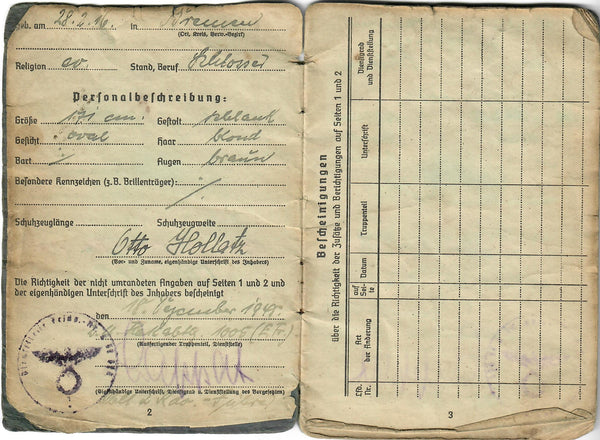 geb. am 28.2.16. in Bremen
(Ort, Kreis, Verw.-Bezirk)
Religion ev. Stand, Beruf Schlosser
Personalbeschreibung:
Größe 171 cm. Gestalt schlank
Gesicht oval Haar blond
Bart ·/· Augen braun
Besondere Kennzeichen (z.B. Brillenträger):
·/·
Schuhzeuglänge Schuhzeugweite
Otto Hollatz
(Vor- und Zuname, eigenhändige Unterschrift des Inhabers)
Die Richtigkeit der nicht umrandeten Angaben auf Seiten 1 und 2
und der eigenhändigen Unterschrift des Inhabers bescheinigt
den
(Ausfertigender Truppenteil, Dienststelle)
(Eigenhändige Unterschrift, Dienstgrad u. Dienststellung des Vorgesetzten)
2
Bescheinigungen
über die Richtigkeit der Zusätze und Berichtigungen auf Seiten 1 und 2
Lfd. Nr.
Art der Änderung
auf Seite
Datum
Truppenteil
Unterschrift
Dienstgrad und Dienststellung
3